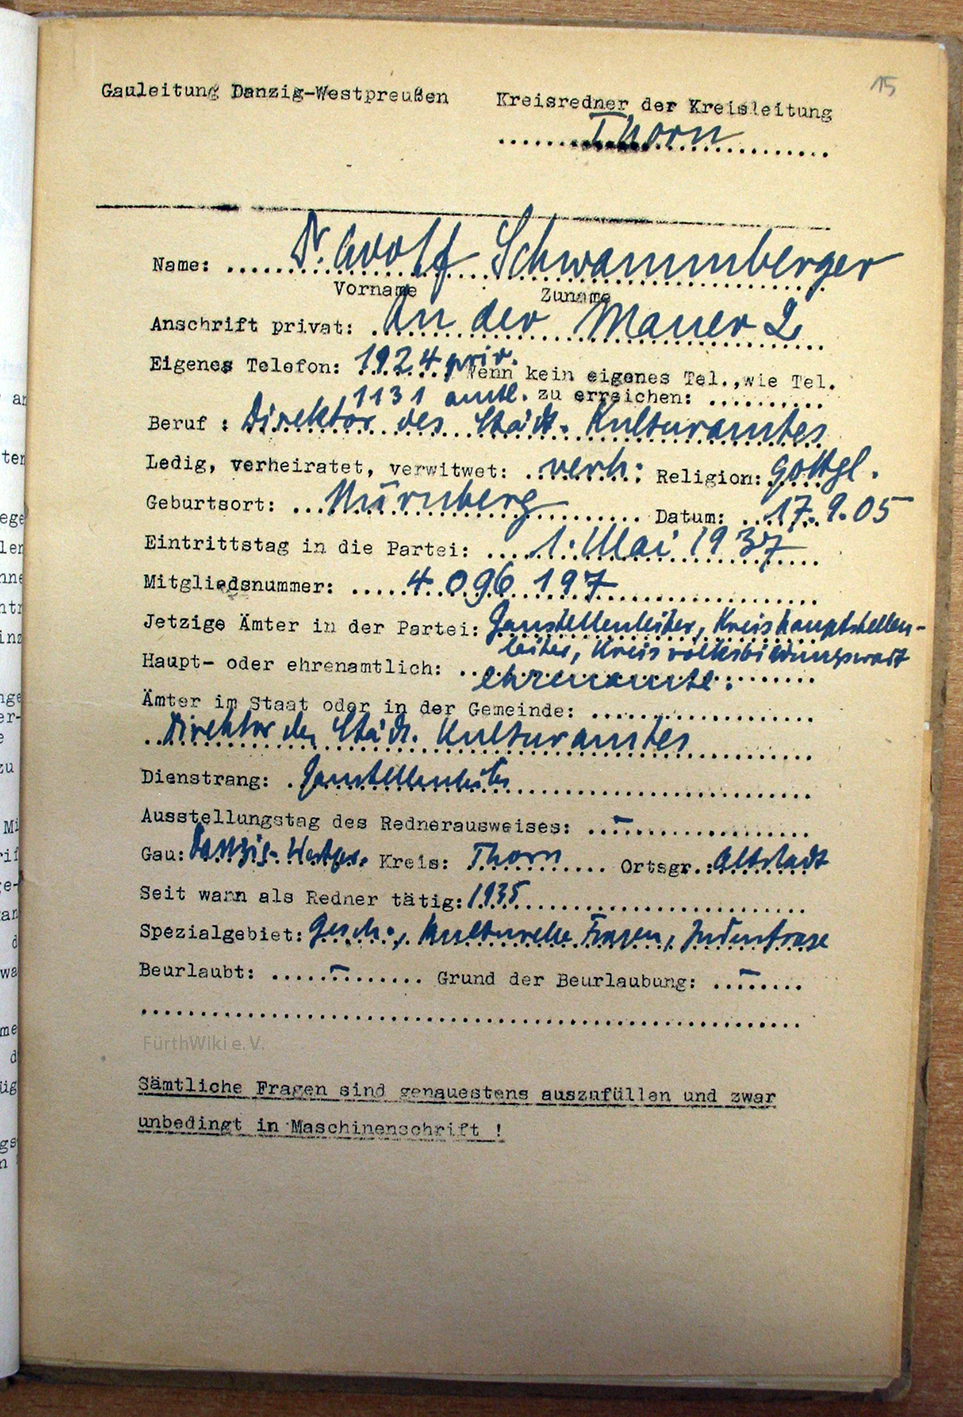 15
Gauleitung Danzig-Westpreußen
Kreisredner der Kreisleitung
Thorn
Name: Dr. Adolf Schwammberger
Vorname Zuname
Anschrift privat: An der Mauer 2
Eigenes Telefon: 1924 priv. Wenn kein eigenes Tel., wie Tel.
1131 amtl. zu erreichen:
Beruf : Direktor des Städt. Kulturamtes
Ledig, verheiratet, verwitwet: verh. Religion: gottgl.
Geburtsort: Nürnberg Datum: 17.9.05
Eintrittstag in die Partei: 1. Mai 1937
Mitgliedsnummer: 4 096 197
Jetzige Ämter in der Partei: Gaustellenleiter, Kreishauptstellen-
leiter, Kreisvolksbildungswart
Haupt- oder ehrenamtlich: ehrenamtl.
Ämter im Staat oder in der Gemeinde:
Direktor des Städt. Kulturamtes
Dienstrang: Gaustellenleiter
Ausstellungstag des Rednerausweises: –
Gau: Danzig-Westpr. Kreis: Thorn Ortsgr.: Altstadt
Seit wann als Redner tätig: 1935
Spezialgebiet: Gesch., kulturelle Fragen, Judenfrage
Beurlaubt: – Grund der Beurlaubung: –
FürthWiki e.V.
Sämtliche Fragen sind genauestens auszufüllen und zwar
unbedingt in Maschinenschrift !